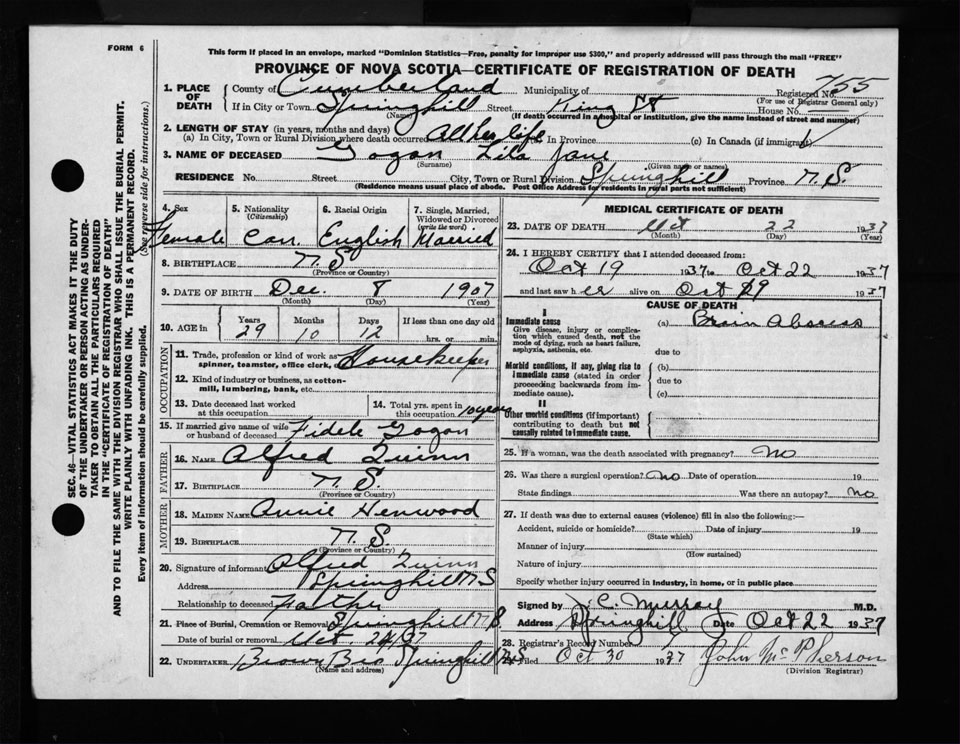 FORM 6
This form if placed in an envelope, marked "Dominion Statistics—Free, penalty for improper use $300," and properly addressed will pass through the mail "FREE"
PROVINCE OF NOVA SCOTIA—CERTIFICATE OF REGISTRATION OF DEATH
SEC. 46—VITAL STATISTICS ACT MAKES IT THE DUTY
OF THE UNDERTAKER OR PERSON ACTING AS UNDER-
TAKER TO OBTAIN ALL THE PARTICULARS REQUIRED
IN THE "CERTIFICATE OF REGISTRATION OF DEATH"
AND TO FILE THE SAME WITH THE DIVISION REGISTRAR WHO SHALL ISSUE THE BURIAL PERMIT.
WRITE PLAINLY WITH UNFADING INK. THIS IS A PERMANENT RECORD.
Every item of information should be carefully supplied. (See reverse side for instructions.)
1. PLACE OF DEATH County of Cumberland Municipality of Registered No. 755
(For use of Registrar General only)
If in City or Town Springhill Street King St House No.
(Name) (If death occurred in a hospital or institution, give the name instead of street and number)
2. LENGTH OF STAY (in years, months and days)
(a) In City, Town or Rural Division where death occurred All her life In Province (c) In Canada (if immigrant)
3. NAME OF DECEASED Gogan Lila Jane
(Surname) (Given name or names)
RESIDENCE No. Street City, Town or Rural Division Springhill Province N.S.
(Residence means usual place of abode. Post Office Address for residents in rural parts not sufficient)
4. Sex Female
5. Nationality (Citizenship) Can.
6. Racial Origin English
7. Single, Married, Widowed or Divorced (write the word) Married
8. BIRTHPLACE N.S.
(Province or Country)
9. DATE OF BIRTH Dec. 8 1907
(Month) (Day) (Year)
10. AGE in Years 29 Months 10 Days 12 If less than one day old hrs. or min.
OCCUPATION
11. Trade, profession or kind of work as spinner, teamster, office clerk, etc. Housekeeper
12. Kind of industry or business, as cotton-mill, lumbering, bank, etc.
13. Date deceased last worked at this occupation
14. Total yrs. spent in this occupation 10 years
15. If married give name of wife or husband of deceased Fidele Gogan
FATHER
16. NAME Alfred Quinn
17. BIRTHPLACE N.S.
(Province or Country)
MOTHER
18. MAIDEN NAME Annie Henwood
19. BIRTHPLACE N.S.
(Province or Country)
20. Signature of informant Alfred Quinn
Address Springhill N.S
Relationship to deceased Father
21. Place of Burial, Cremation or Removal Springhill N.S
Date of burial or removal Oct. 24/37
22. UNDERTAKER Brown Bro Springhill N.S
(Name and address)
MEDICAL CERTIFICATE OF DEATH
23. DATE OF DEATH Oct 22 1937
(Month) (Day) (Year)
24. I HEREBY CERTIFY that I attended deceased from:
Oct 19 1937 to Oct 22 1937
and last saw her alive on Oct 1937
CAUSE OF DEATH
I
Immediate cause (a) Brain Abscess
Give disease, injury or complication which caused death, not the mode of dying, such as heart failure, asphyxia, asthenia, etc.
due to
Morbid conditions, if any, giving rise to immediate cause (stated in order proceeding backwards from immediate cause). (b)
due to
(c)
II
Other morbid conditions (if important) contributing to death but not causally related to immediate cause.
25. If a woman, was the death associated with pregnancy? No
26. Was there a surgical operation? No Date of operation 19
State findings Was there an autopsy? No
27. If death was due to external causes (violence) fill in also the following:—
Accident, suicide or homicide? Date of injury 19
(State which)
Manner of injury
(How sustained)
Nature of injury
Specify whether injury occurred in industry, in home, or in public place
Signed by J.C. Murray M.D.
Address Springhill Date Oct 22 1937
28. Registrar's Record Number
Filed Oct 30 1937 John McPherson
(Division Registrar)